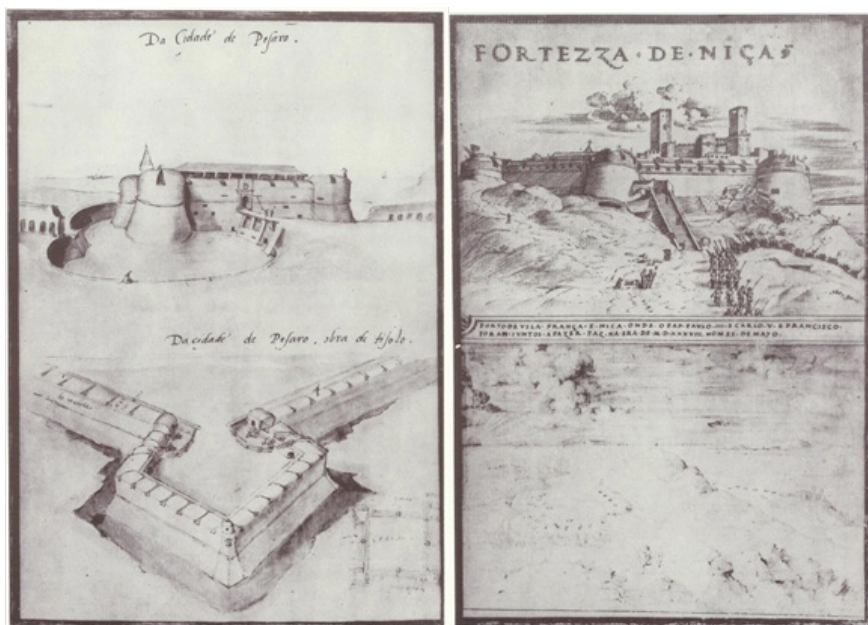 Da Cidade de Pesaro.
Da cidade de Pesaro, obra de tijolo.
FORTEZZA · DE · NIÇA
PORTO DE VILA FRANÇA · E · NIÇA · ONDE · O PAP · PAVLO · III · E CARLO · V · E FRANCISCO ·
FORAM · IVNTOS · A FAZER · PAZ · NA ERA DE · M · D · XXXVIII · NO MES · DE MAYO ·